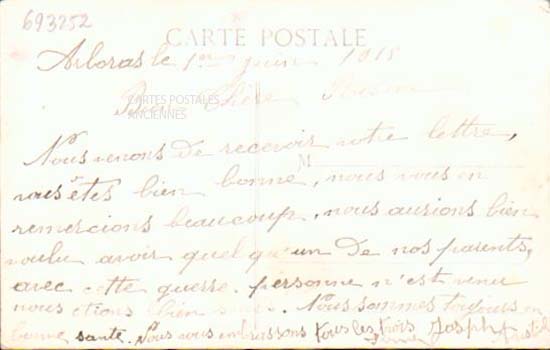 693252
CARTE POSTALE
Arboras le 1er juin 1915
Bien Chère
CARTES POSTALES
ANCIENNES
Nous venons de recevoir votre lettre,
M
vous êtes bien bonne, nous vous en
remercions beaucoup, nous aurions bien
voulu avoir quelqu'un de nos parents,
avec cette guerre. personne n'est venu
nous étions bien Nous sommes toujours en
bonne santé. Nous vous embrassons tous les trois Joseph